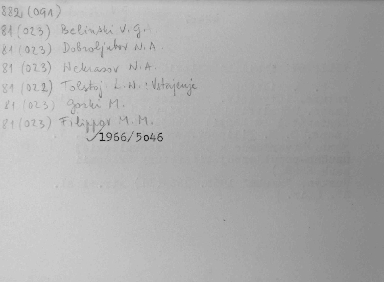 882 (091)
81 (023) Belinski V. G.
81 (023) Dobroljubov N. A.
81 (023) Nekrasov N. A.
81 (022) Tolstoj L. N. : Vstajenje
81 (023) Gorki M.
81 (023) Filippov M. M.
1966/5046